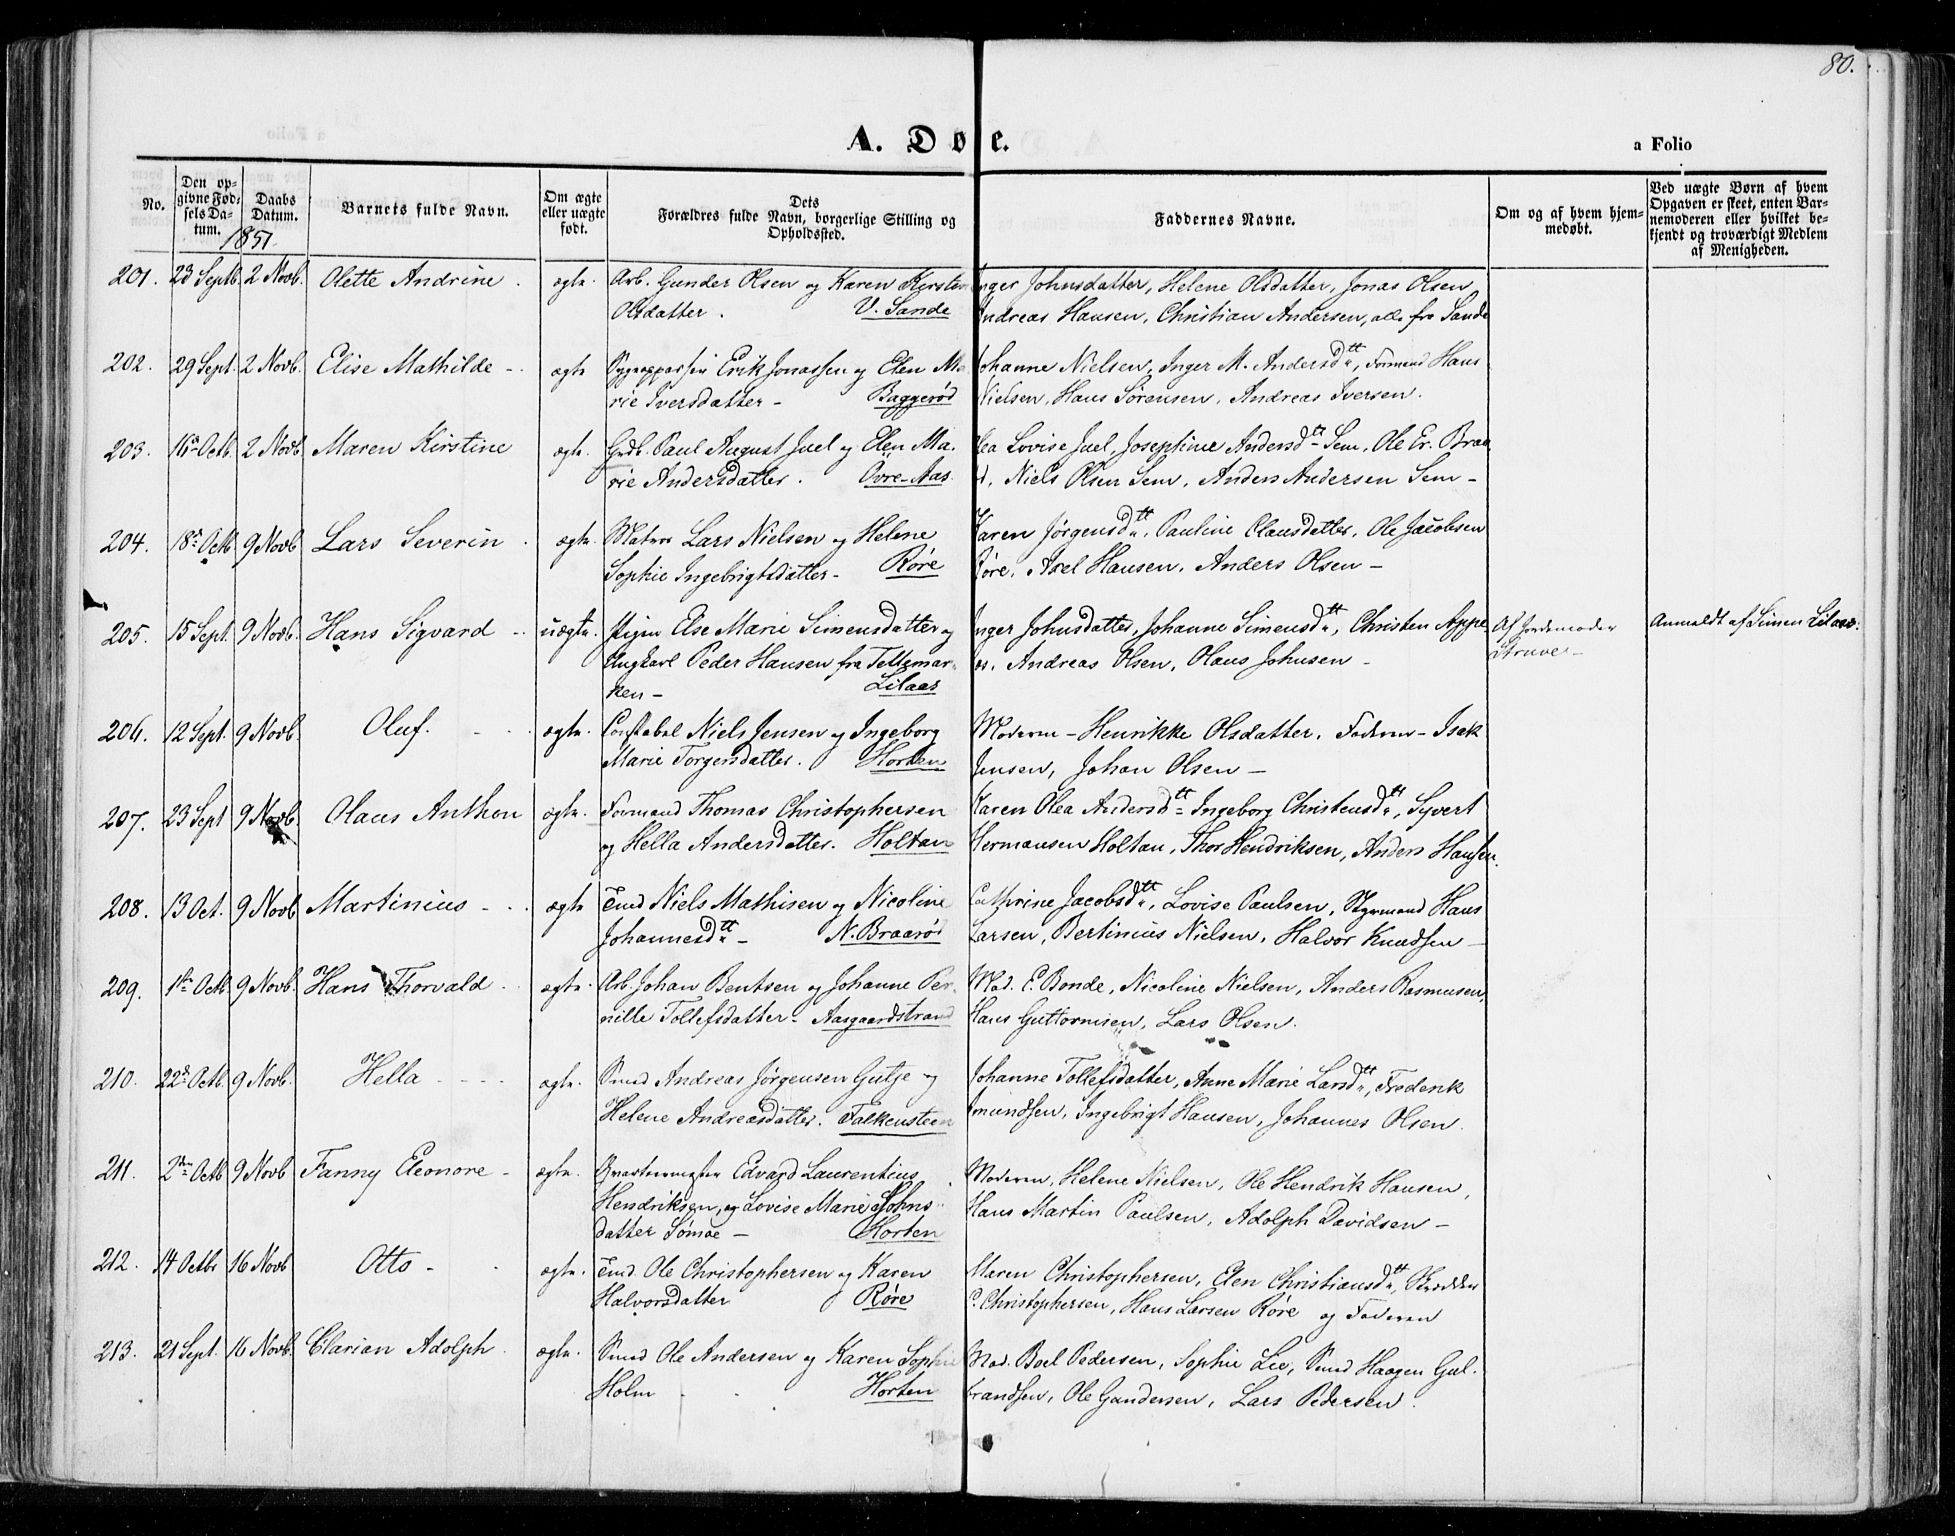 80.
A. Døbte.
a Folio
No.
Den op-
givne Fød-
sels Da-
tum.
Daabs
Datum.
Barnets fulde Navn.
Om ægte
eller uægte
født.
Dets
Forældres fulde Navn, borgerlige Stilling og
Opholdssted.
Faddernes Navne.
Om og af hvem hjem-
medøbt.
Ved uægte Børn af hvem
Opgaven er skeet, enten Bar-
nemoderen eller hvilket be-
kjendt og troværdigt Medlem
af Menigheden.
1851
201. 23 Septb. 2 Novb. Olette Andrine ægte. Arb. Gunder Olsen og Karen Kirstine
Olsdatter. V. Sande
Inger Johnsdatter, Helene Olsdatter, Jonas Olsen
Andreas Hansen, Christian Andersen, alle fra Sande
202. 29 Sept. 2 Novb. Elise Mathilde ægte Erik Jonassen og Elen Ma-
rie Iversdatter - Baggerød
Johanne Nielsen, Inger M. Andersdtt, Formand Hans
Nielsen, Hans Sørensen, Andreas Iversen.
203. 16 Octb. 2 Novb. Maren Kirstine ægte. Grdb. Paul August Juel og Elen Ma-
rie Andersdatter. Øvre-Aas
Lovise Juel, Josephine Andersdtt Sem, Ole Er. Braa
Niels Olsen Sem, Anders Andersen Sem -
204. 18 Octb. 9 Novb Lars Severin ægte. Matros Lars Nielsen og Helene
Sophie Ingebrigtsdatter - Røre
Karen Jørgensdtt, Pauline Clausdatter, Ole Jacobsen
Røre, Axel Hansen, Anders Olsen -
205. 15 Sept. 9 Novb. Hans Sigvard uægte. Pigen Else Marie Simensdatter og
Ungkarl Peder Hansen fra Tellemar-
ken - Lilaas
Inger Johnsdatter, Johanne Simensdtt, Christen Appe
Andreas Olsen, Olaus Johnsen -
Af Jordemoder
Struve -
Anmeldt af Simen Lilaas.
206. 12 Sept. 9 Novb. Oluf. ægte. Constabel Niels Jensen og Ingeborg
Marie Torgersdatter. Horten
Moderen - Henrikke Olsdatter, Faderen - Isak
Jensen, Johan Olsen -
207. 23 Sept 9 Novb. Olaus Anthon ægte. Formand Thomas Christophersen
og Hella Andersdatter. Holtan
Karen Olea Andersdtt Ingeborg Christensdtt, Syvert
Hermansen Holtan, Thor Hendriksen, Anders Hansen.
208. 13 Oct. 9 Novb Martinius ægte Tmd Niels Mathisen og Nicoline
Johannesdtt - N. Braarød
Cathrine Jacobsdtt, Lovise Paulsen, Styrmand Hans
Larsen, Bertinius Nielsen, Halvor Knudsen -
209. 1ste Octb. 9 Novb. Hans Thorvald ægte. Arb. Johan Bentsen og Johanne Per-
nille Tollefsdatter - Aasgaardstrand
Mad. E. Bonde, Nicoline Nielsen, Anders Rasmusen,
Hans Guttormsen, Lars Olsen.
210. 22d Octb. 9 Novb. Hella ægte. Smed Andreas Jørgensen Gutje og
Helene Andreasdatter. Falkensteen
Johanne Tollefsdatter, Anne Marie Larsdtt, Frederik
Amundsen, Ingebrigt Hansen, Johannes Olsen.
211. 2den Octb 9 Novb Fanny Eleonore - ægte. Qvarteermester Edvard Laurentius
Hendriksen, og Lovise Marie Johns-
datter Sømoe - Horten
Moderen, Helene Nielsen, Ole Hendrik Hansen,
Hans Martin Paulsen, Adolph Davidsen -
212. 14 Octbr 16 Novb Otto - ægte. Tmd. Ole Christophersen og Karen
Halvorsdatter Røre
Maren Christophersen, Elen Christiansdtt, Skrædder
C. Christophersen, Hans Larsen Røre og Faderen
213. 21 Sept. 16 Novb. Clarian Adolph ægte. Smed Ole Andersen og Karen Sophie
Holm Horten
Mad. Boel Pedersen, Sophie Lie, Smed Haagen Gul-
brandsen, Ole Gundersen, Lars Pedersen.